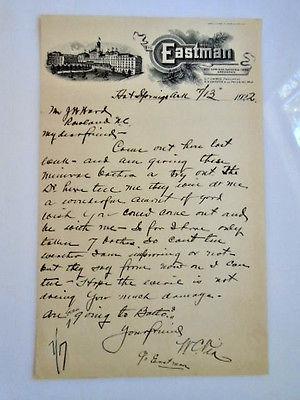 Eastman
Hot Springs Ark 7/13 1912
Mr J W Ward
Rowland N.C.
My dear friend -
Come out here last
week - and am giving these
mineral baths a try out the
Drs here tell me they will do me
a wonderful amount of good
wish you could come out and
be with me - So far I have only
taken 7 baths So cant tell
weather I am improving or not
but they say from now on I can
tell - Hope the is not
doing you much damage -
Are you going to
Your friend
W.C.
% Eastman
7/17